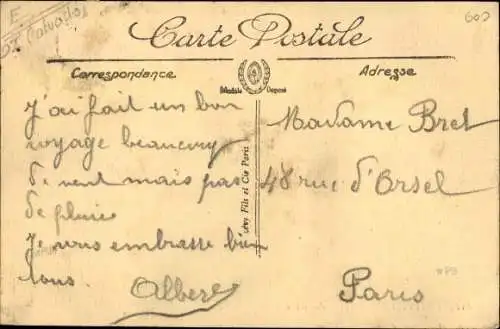 E
(Calvados)
600
Carte Postale
Correspondance
Adresse
Modèle Déposé
J'ai fait un bon
voyage beaucoup
de vent mais pas
de pluie
Je vous embrasse bien
tous. Albert
Lévy Fils et Cie Paris
Madame Bret
48 rue d'Orsel
Paris